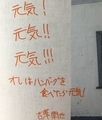 元気!
元気!!
元気!!!
オレはハンバーグを
食べたら元気!